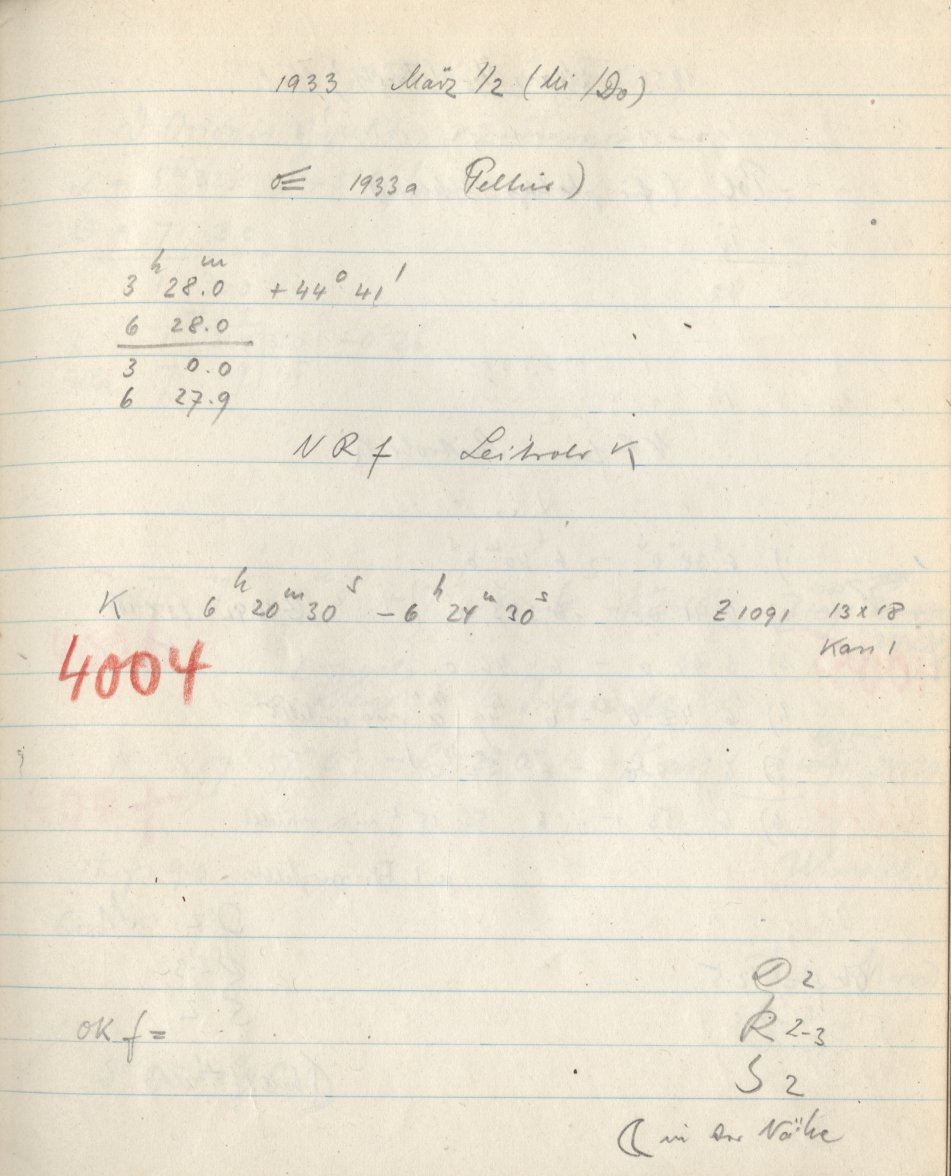 1933 März 1/2 (Mi/Do)
☄ 1933a Peltier)
3ʰ 28.0ᵐ +44° 41'
6 28.0
3 0.0
6 27.9
N R f Leitrohr K
K 6ʰ 20ᵐ 30ˢ – 6ʰ 24ᵐ 30ˢ Z 1091 13x18
Kass 1
4004
D 2
OK f = R 2-3
S 2
☾ in der Nähe